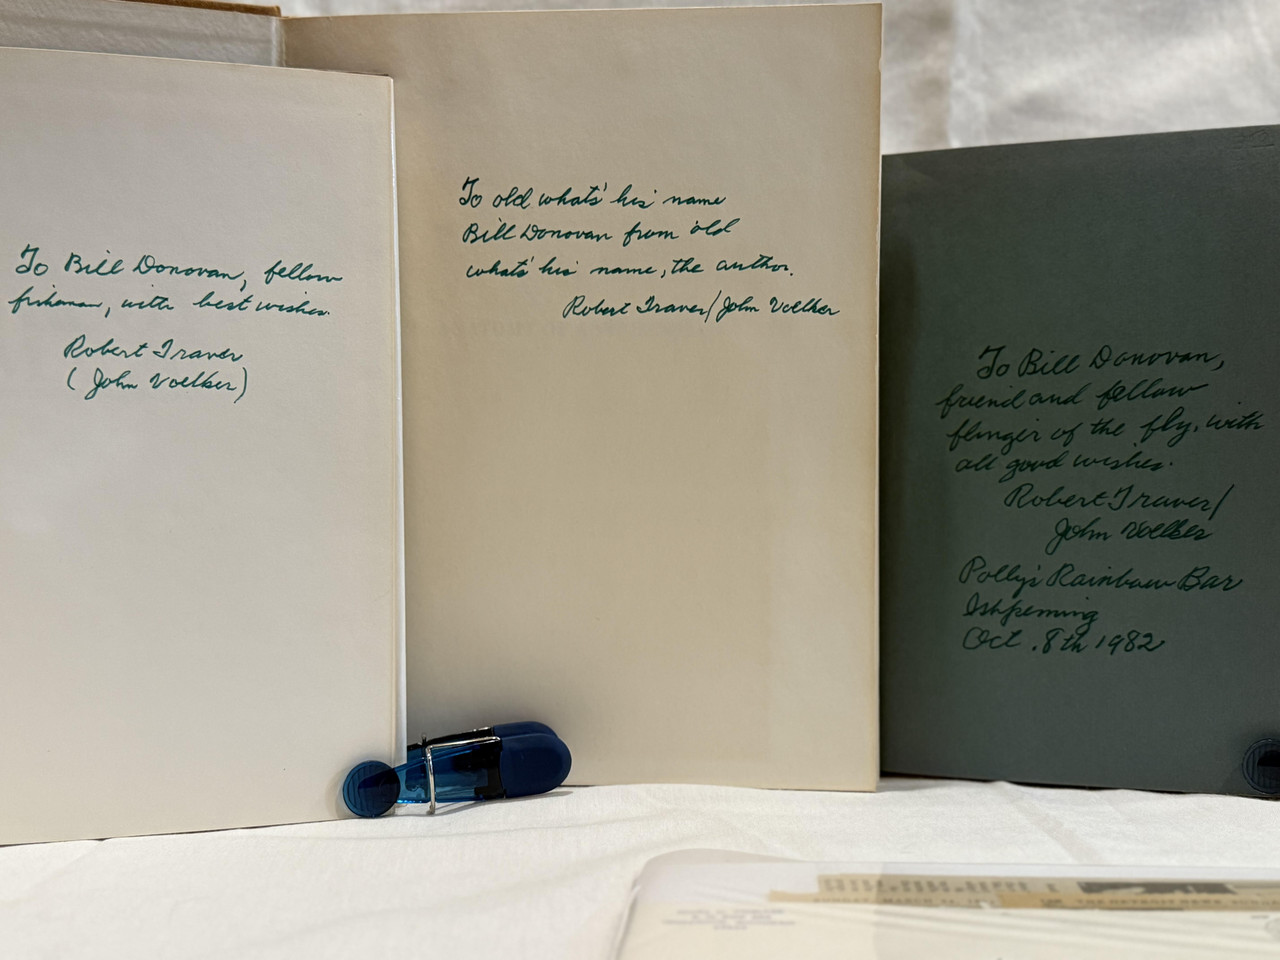 To Bill Donovan, fellow
fisherman, with best wishes.
Robert Traver
(John Voelker)
To old whats' his' name
Bill Donovan from old
whats' his' name, the author.
Robert Traver/John Voelker
To Bill Donovan,
friend and fellow
flinger of the fly, with
all good wishes.
Robert Traver/
John Voelker
Polly's Rainbow Bar
Ishpeming
Oct. 8th 1982
THE DETROIT NEWS